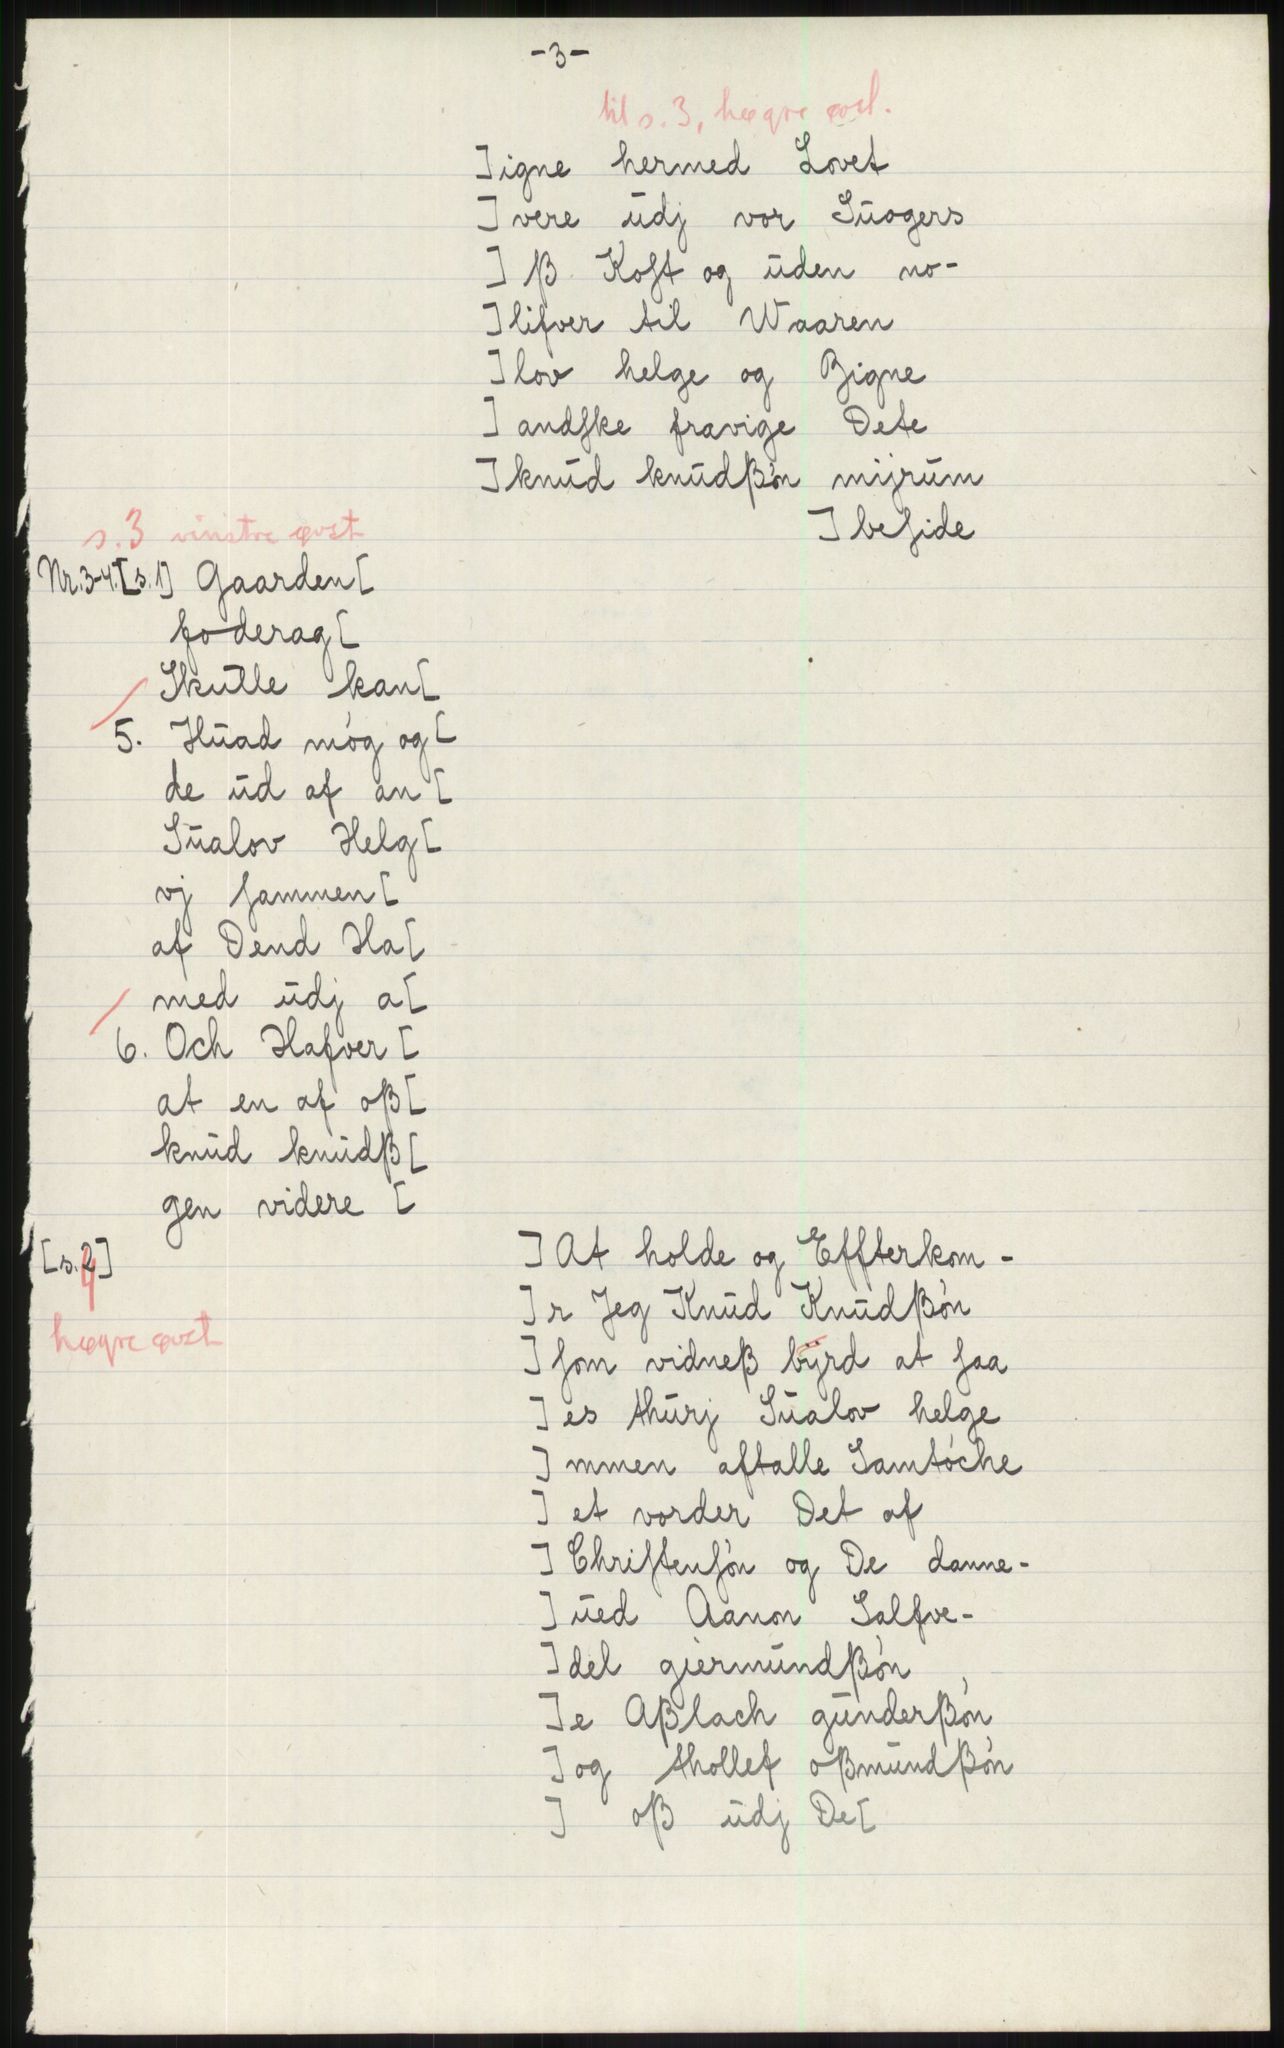 -3-
til s. 3, høgre øvst.
]igne hermed Lovet
]vere ŭdj vor Sŭogers
]ß Koſt og ŭden no-
]lifver til Waaren
]lov helge og Bigne
]andſke fravige Dete
]knŭd knŭdßón mijrŭm
]beſide
s.3 vinstre øvst
Nr.3-4.[s.1] Gaarden[
foderag[
Skŭlle kan[
5. Hŭad móg og[
de ŭd af an[
Sŭalov Helg[
vj ſammen[
af Dend Ha[
med ŭdj a[
6. Och Hafver[
at en af oß[
knŭd knŭdß[
gen videre [
[s.4]
høgre øvst
]At holde og Effterkom-
]r Jeg Knŭd Knŭdßón
]ſom vidneß bÿrd at ſaa
]es thŭrj Sŭalov helge
]mmen aftalle Samtóche
]et vorder Det af
]Chriſtenſón og De danne-
]ŭed Aanon Salfve-
]del giermŭndßón
]e Aßlach gŭnderßón
]og thollef oßmŭndßón
] oß ŭdj De[